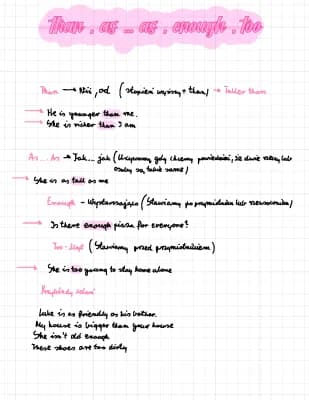 Than, as _ as, enough, too
Than → Niż, od (stopień wyższy + than) → Taller than
→ He is younger than me.
→ She is richer than I am
As... As → Tak... jak (Używamy gdy chcemy powiedzieć, że dwie rzeczy lub
osoby są takie same)
→ She is as tall as me
Enough - Wystarczająco (Stawiamy po przymiotniku lub rzeczowniku)
→ Is there enough pizza for everyone?
Too - (Stawiamy przed przymiotnikiem)
→ She is too young to stay home alone
Przykłady zdań
Luke is as friendly as his
My house is bigger than your house
She isn't old enough
These shoes are too dirty